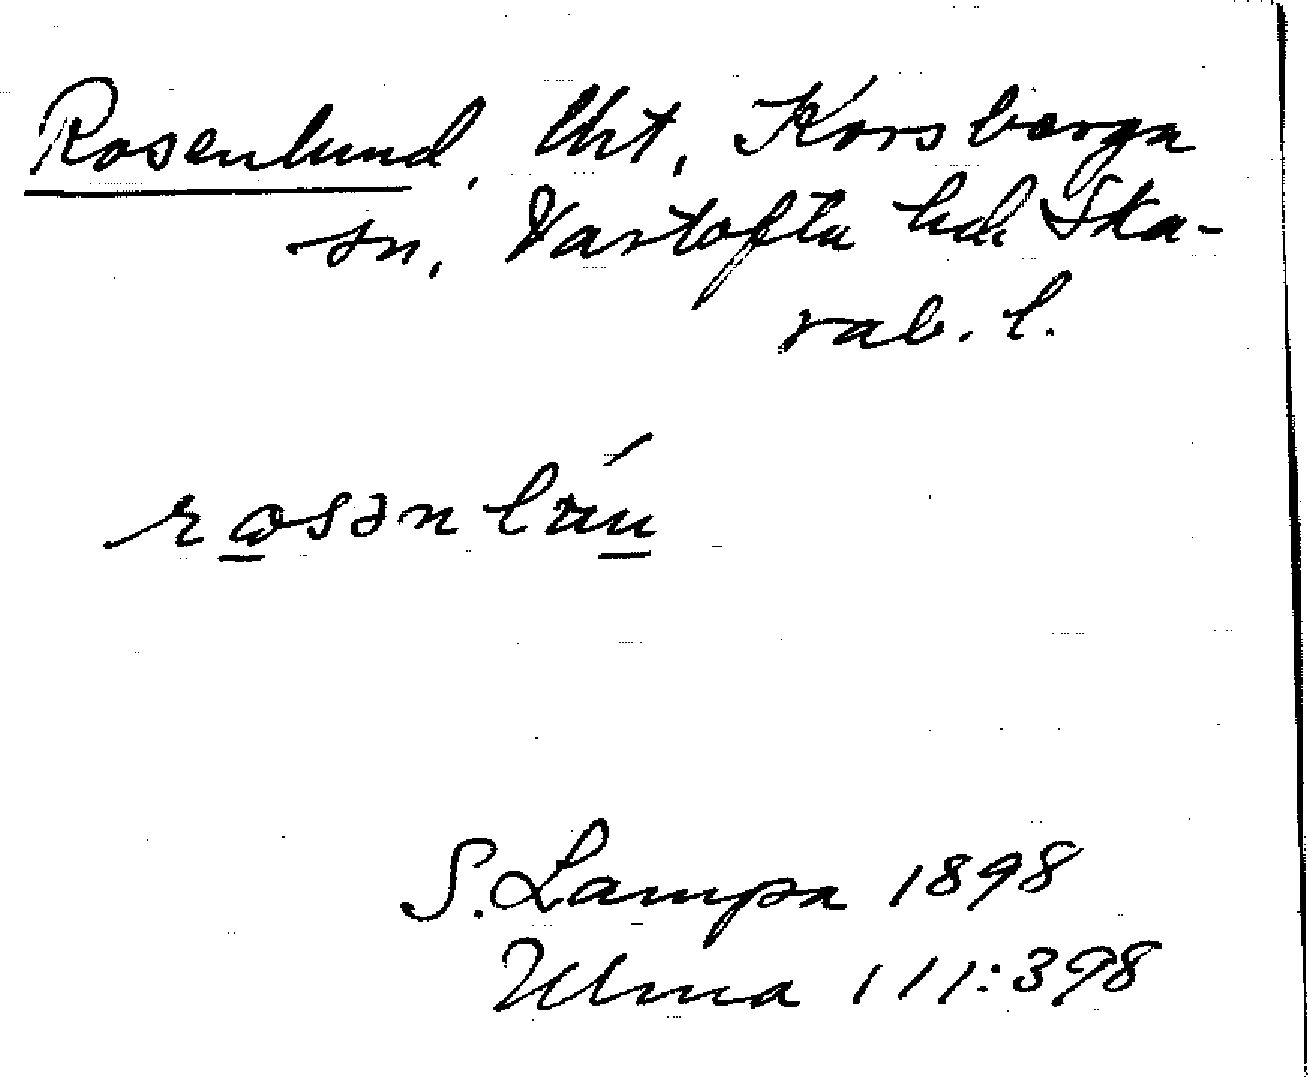 Rosenlund, lht, Korsberga
sn, Vartofta hd. Ska-
rab. l.
S. Lampa 1898
Ulma 111:398